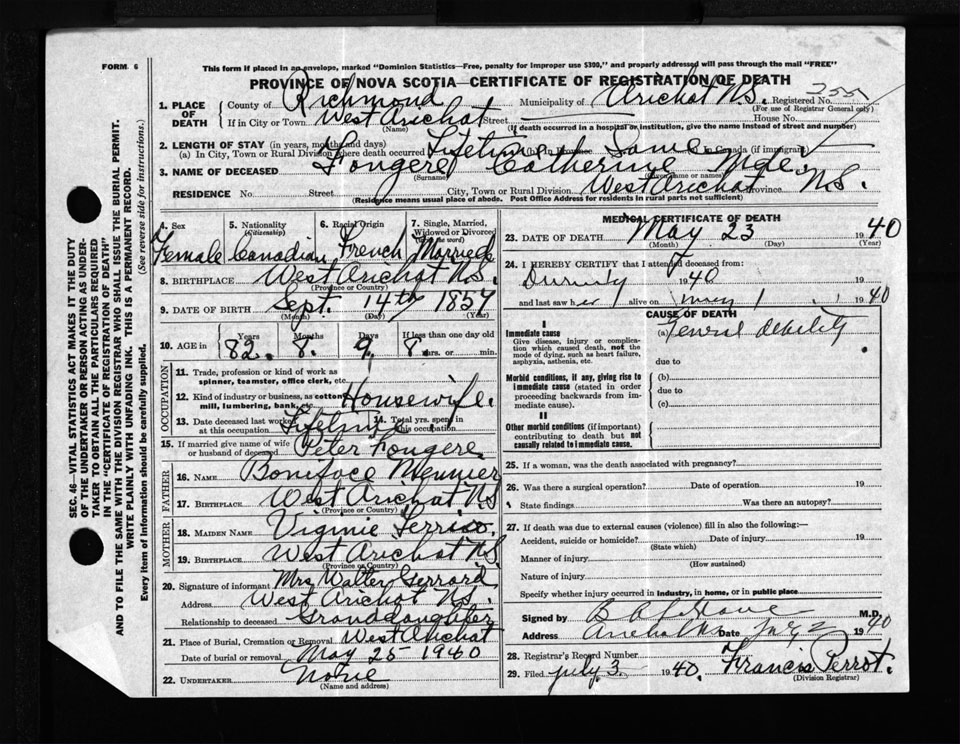 FORM 6
This form if placed in an envelope, marked "Dominion Statistics—Free, penalty for improper use $300," and properly addressed will pass through the mail "FREE"
PROVINCE OF NOVA SCOTIA—CERTIFICATE OF REGISTRATION OF DEATH
1. PLACE OF DEATH
County of Richmond Municipality of Arichat N.S. Registered No.
(For use of Registrar General only)
If in City or Town West Arichat Street House No.
(Name) (If death occurred in a hospital or institution, give the name instead of street and number)
2. LENGTH OF STAY (in years, months and days)
(a) In City, Town or Rural Division where death occurred Lifetime (b) In Province Same (c) In Canada (if immigrant)
3. NAME OF DECEASED Fougere Catherine Mde.
(Surname)
RESIDENCE No. Street City, Town or Rural Division West Arichat Province N.S.
(Residence means usual place of abode. Post Office Address for residents in rural parts not sufficient)
4. Sex 5. Nationality 6. Racial Origin 7. Single, Married, Widowed or Divorced
(Citizenship) (Write the word)
Female Canadian French Married
8. BIRTHPLACE West Arichat N.S.
(Province or Country)
9. DATE OF BIRTH Sept. 14th 1857
(Month) (Day) (Year)
10. AGE in Years Months Days If less than one day old
82. 8. 9. 8 hrs. or min.
OCCUPATION
11. Trade, profession or kind of work as spinner, teamster, office clerk, etc.
12. Kind of industry or business, as cotton mill, lumbering, bank, etc. Housewife.
13. Date deceased last worked at this occupation Lifetime 14. Total yrs. spent in this occupation
15. If married give name of wife or husband of deceased Peter Fougere
FATHER
16. NAME Boniface Mennier
17. BIRTHPLACE West Arichat N.S.
(Province or Country)
MOTHER
18. MAIDEN NAME Virginie
19. BIRTHPLACE West Arichat N.S.
(Province or Country)
20. Signature of informant Mrs Walter Gerrard
Address West Arichat N.S.
Relationship to deceased Granddaughter
21. Place of Burial, Cremation or Removal West Arichat
Date of burial or removal May 25 1940
22. UNDERTAKER None
(Name and address)
MEDICAL CERTIFICATE OF DEATH
23. DATE OF DEATH May 23 1940
(Month) (Day) (Year)
24. I HEREBY CERTIFY that I attended deceased from:
1940
and last saw her alive on May 1 1940
CAUSE OF DEATH
I
Immediate cause
Give disease, injury or complication which caused death, not the mode of dying, such as heart failure, asphyxia, asthenia, etc.
(a) General debility
due to
Morbid conditions, if any, giving rise to immediate cause (stated in order proceeding backwards from immediate cause).
(b)
due to
(c)
II
Other morbid conditions (if important) contributing to death but not causally related to immediate cause.
25. If a woman, was the death associated with pregnancy?
26. Was there a surgical operation? Date of operation 19
State findings Was there an autopsy?
27. If death was due to external causes (violence) fill in also the following:—
Accident, suicide or homicide? Date of injury 19
(State which)
Manner of injury
(How sustained)
Nature of injury
Specify whether injury occurred in industry, in home, or in public place
Signed by M.D.
Address Date 1940
28. Registrar's Record Number
29. Filed July 3 1940. Francis Perrot.
(Division Registrar)
SEC. 46—VITAL STATISTICS ACT MAKES IT THE DUTY
OF THE UNDERTAKER OR PERSON ACTING AS UNDER-
TAKER TO OBTAIN ALL THE PARTICULARS REQUIRED
IN THE "CERTIFICATE OF REGISTRATION OF DEATH"
AND TO FILE THE SAME WITH THE DIVISION REGISTRAR WHO SHALL ISSUE THE BURIAL PERMIT.
WRITE PLAINLY WITH UNFADING INK. THIS IS A PERMANENT RECORD.
Every item of information should be carefully supplied. (See reverse side for instructions.)